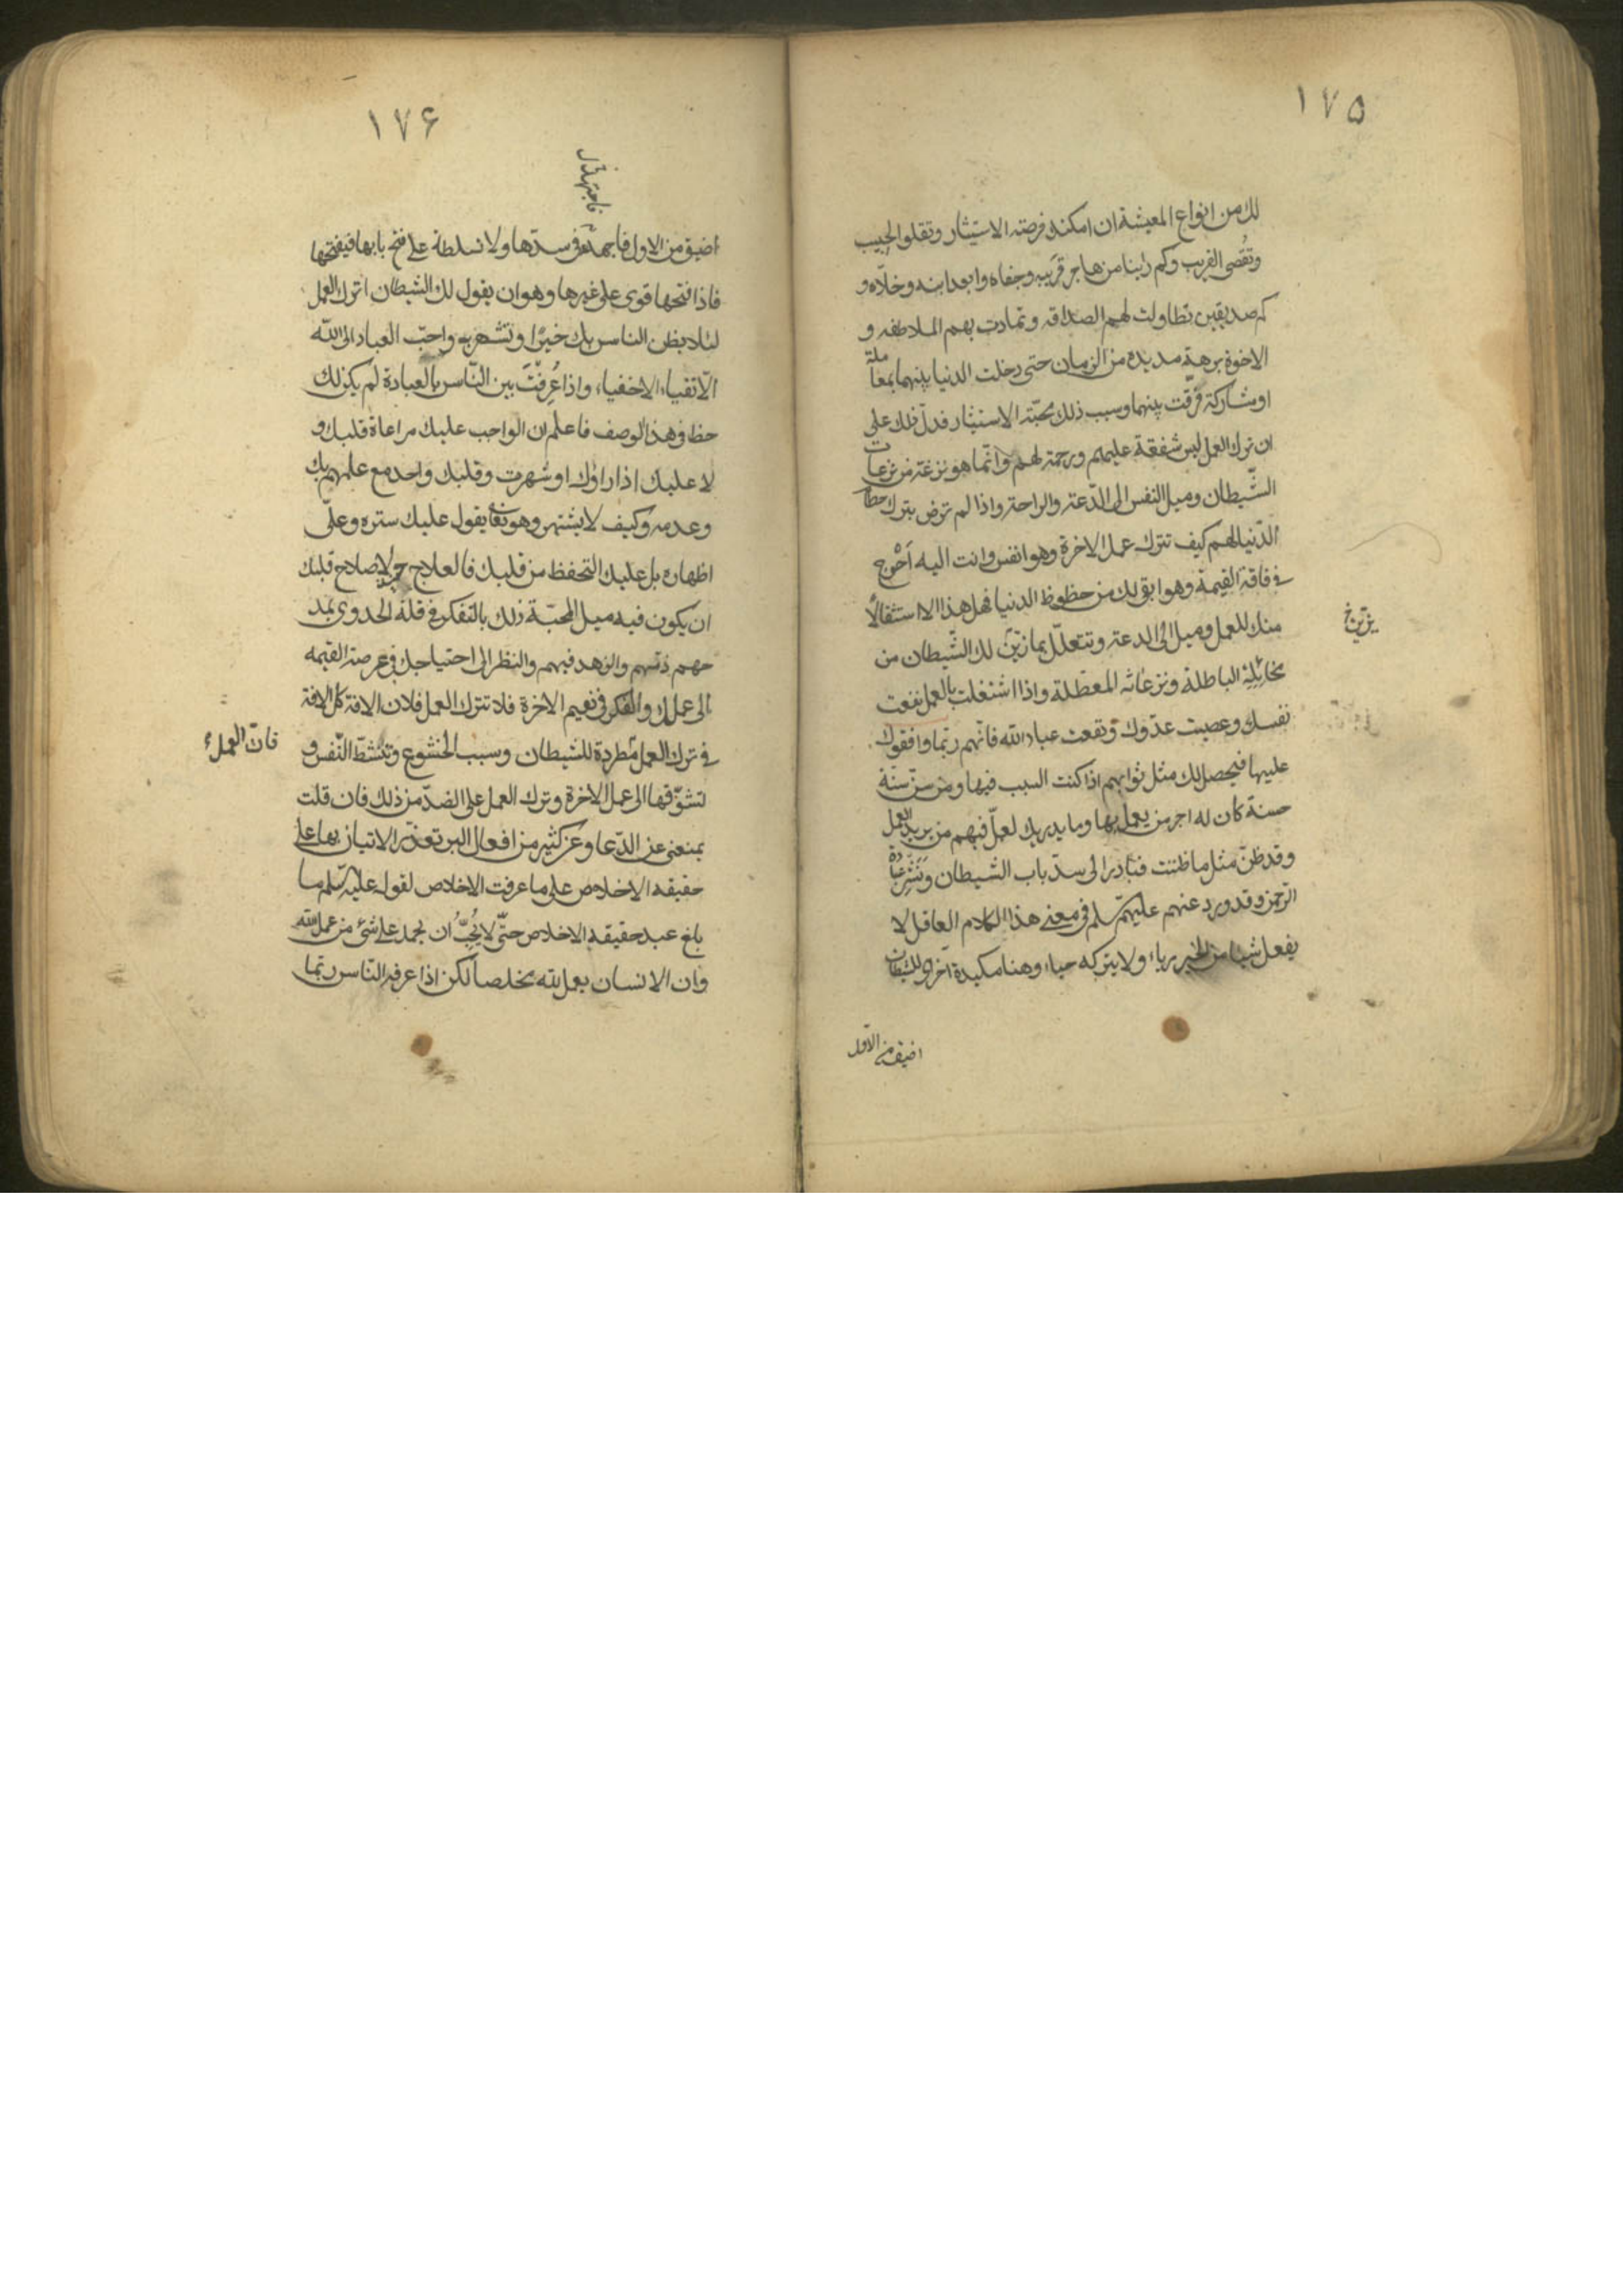 ١٧٥
لك من انواع المعيشة ان امكنك فرصة الاستيثار وتقلو الحبيب
وتقصى القريب وكم راينا من هاجر قريبه وجفاه وابعد ابنه وخلاه و
كم صديقين تطاولت لهم الصداقه وتمادت بهم الملاطفه و
الاخوة برهة مديده من الزمان حتى دخلت الدنيا بينهما بمعاملة
او مشاركة فرقت بينهما وسبب ذلك محبّة الاستيثار فدلّ ذلك على
ان ترك العمل ليس شفقة عليهم ورحمة لهم وانّما هو نزغة من نزغات
الشّيطان وميل النفس الى الدّعة والراحة واذا لم ترض بترك حطام
الدّنيا لهم كيف تترك عمل الاخرة وهو انفس وانت اليه اَحْوج
فى فاقة القيمة وهو ابقى لك من حظوظ الدنيا فهل هذا الا استثقالًا
منك للعمل وميل الى الدعة وتتعلّل بما زيّن لك الشّيطان من
يزيّن خ
مخائِله الباطلة ونزغاته المعطلة واذا اشتغلت بالعمل نفعت
نفسك وعصيت عدّوك ونفعت عباد الله فانّهم ربّما وافقوك
عليها فيحصل لك مثل ثوابهم اذا كنت السبب فيها ومن سنّ سنّة
حسنة كان له اجر من يعمل بها وما يدريك لعلّ فيهم من يريد العمل
وقد ظنّ مثل ما ظننت فتبادر الى سدّ باب الشّيطان
الرّحمن وقد ورد عنهم عليهم سلم فى معنى هذا الكلام العاقل لا
يفعل شيئا من الخير رياء ولا يتركه حياء وهنا مكيدة اخرى للشيطان
اضيق من الاوّل
١٧۶
اضيق من الاول فاجهد فى سدّها ولا تسلطه على فتح بابها فيفتحها
فاذا فتحها قوى على غيرها وهو ان يقول لك الشيطان اترك العمل
لئلا يظن الناس بك خيرًا وتشتهر به واحبّ العباد الى الله
الاتقياء الاخفياء واذا عُرِفْتَ بين النّاس بالعبادة لم يكن لك
حظ فى هذا الوصف فاعلم ان الواجب عليك مراعاة قلبك و
لا عليك اذا راوك او شهرت وقلبك واحد مع علمهم بك
وعدمه وكيف لا يشتهر وهو تعالى يقول عليك ستره وعلىّ
اظهاره بل عليك التحفظ من قلبك فالعلاج ح لاصلاح قلبك
ان يكون فيه ميل المحبّة ذلك بالتفكر فى قلة الجدوى بمد
حهم وذمهم والزهد فيهم والنظر الى احتياجك فى عرصة القيمه
الى عملك والفكر فى نعيم الاخرة فلا تترك العمل فلان الافة كل الافة
فى ترك العمل مطردة للشيطان وسبب الخشوع وتنشّط النّفس و
فان العمل
لتشوّقها الى عمل الاخرة وترك العمل على الضدّ من ذلك فان قلت
يمنعنى عن الدّعا وعن كثير من افعال البر تعذّر الاتيان بها على
حقيقة الاخلاص على ما عرفت الاخلاص لقوله عليه سلم ما
بلغ عبد حقيقة الاخلاص حتّى لا يُحِبُّ ان يحمد على شئ من عمل لله
وان الانسان يعمل لله مخلصا لكن اذا عرفه النّاس ربّما